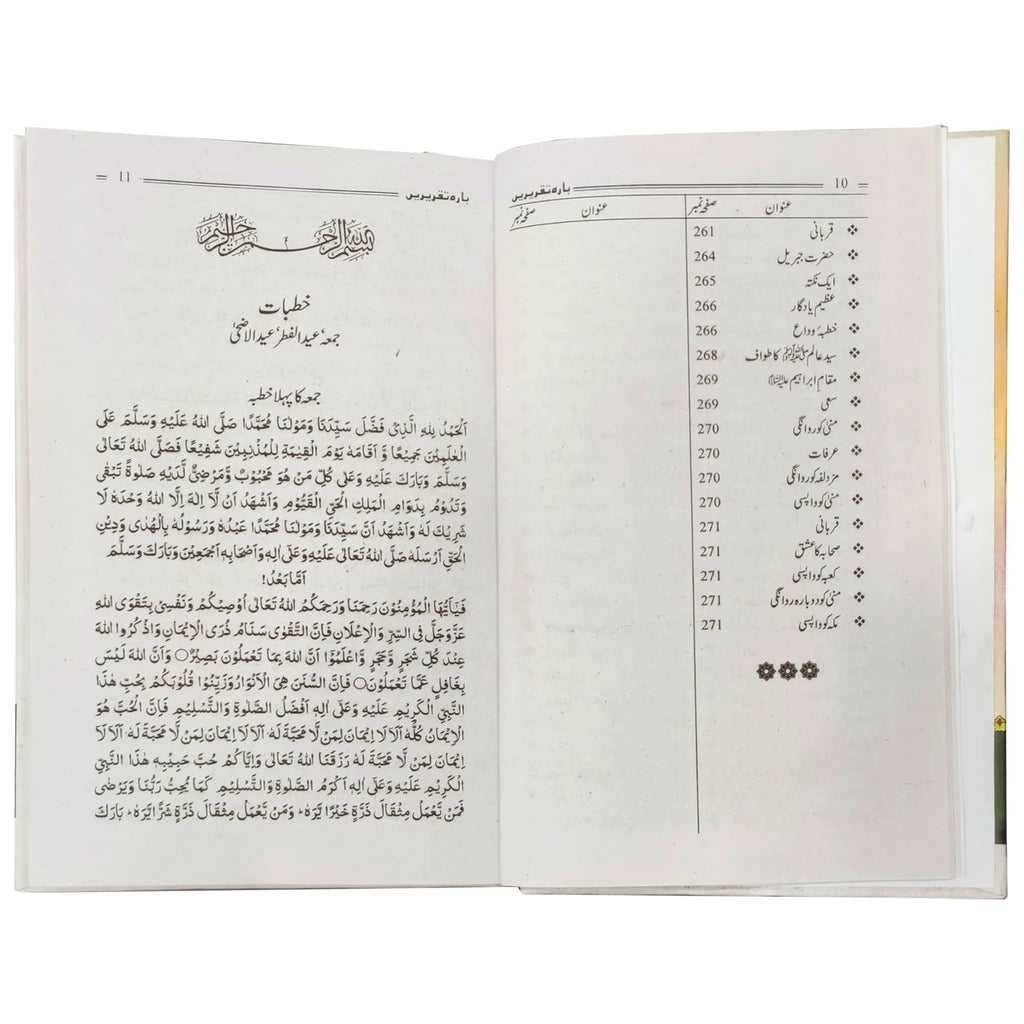 10 بارہ تقریریں
عنوان صفحہ نمبر عنوان صفحہ نمبر
❖ قربانی 261
❖ حضرت جبریل 264
❖ ایک نکتہ 265
❖ عظیم یادگار 266
❖ خطبۂ وداع 266
❖ سید عالم ﷺ کا طواف 268
❖ مقامِ ابراہیم علیہ السلام 269
❖ سعی 269
❖ منیٰ کو روانگی 270
❖ عرفات 270
❖ مزدلفہ کو روانگی 270
❖ منیٰ کو واپسی 270
❖ قربانی 271
❖ صحابہ کا عشق 271
❖ کعبہ کو واپسی 271
❖ منیٰ کو دوبارہ روانگی 271
❖ مکہ کو واپسی 271
بارہ تقریریں 11
بسم الله الرحمن الرحيم
خطبات
جمعہ، عید الفطر، عید الاضحیٰ
جمعہ کا پہلا خطبہ
اَلْحَمْدُ لِلّٰهِ الَّذِيْ فَضَّلَ سَيِّدَنَا وَمَوْلٰنَا مُحَمَّدًا صَلَّى اللّٰهُ عَلَيْهِ وَسَلَّمَ عَلَى
الْعٰلَمِيْنَ جَمِيْعًا وَّ اَقَامَهٗ يَوْمَ الْقِيٰمَةِ لِلْمُذْنِبِيْنَ شَفِيْعًا فَصَلَّى اللّٰهُ تَعَالٰى
وَسَلَّمَ وَبَارَكَ عَلَيْهِ وَعَلٰى كُلِّ مَنْ هُوَ مَحْبُوْبٌ وَّمَرْضِيٌّ لَّدَيْهِ صَلٰوةً تَبْقٰى
وَتَدُوْمُ بِدَوَامِ الْمَلِكِ الْحَيِّ الْقَيُّوْمِ وَاَشْهَدُ اَنْ لَّآ اِلٰهَ اِلَّا اللّٰهُ وَحْدَهٗ لَا
شَرِيْكَ لَهٗ وَاَشْهَدُ اَنَّ سَيِّدَنَا وَمَوْلٰنَا مُحَمَّدًا عَبْدُهٗ وَرَسُوْلُهٗ بِالْهُدٰى وَدِيْنِ
الْحَقِّ اَرْسَلَهٗ صَلَّى اللّٰهُ تَعَالٰى عَلَيْهِ وَعَلٰى اٰلِهٖ وَاَصْحَابِهٖ اَجْمَعِيْنَ وَبَارَكَ وَسَلَّمَ
اَمَّا بَعْدُ!
فَيٰٓاَيُّهَا الْمُؤْمِنُوْنَ رَحِمَنَا وَرَحِمَكُمُ اللّٰهُ تَعَالٰى اُوْصِيْكُمْ وَنَفْسِيْ بِتَقْوَى اللّٰهِ
عَزَّوَجَلَّ فِي السِّرِّ وَالْاِعْلَانِ فَاِنَّ التَّقْوٰى سَنَامُ ذُرَى الْاِيْمَانِ وَاذْكُرُوا اللّٰهَ
عِنْدَ كُلِّ شَجَرٍ وَّحَجَرٍ وَاعْلَمُوْٓا اَنَّ اللّٰهَ بِمَا تَعْمَلُوْنَ بَصِيْرٌ○ وَاَنَّ اللّٰهَ لَيْسَ
بِغَافِلٍ عَمَّا تَعْمَلُوْنَ○ فَاِنَّ السُّنَنَ هِيَ الْاَنْوَارُ وَزَيِّنُوْا قُلُوْبَكُمْ بِحُبِّ هٰذَا
النَّبِيِّ الْكَرِيْمِ عَلَيْهِ وَعَلٰى اٰلِهٖ اَفْضَلُ الصَّلٰوةِ وَالتَّسْلِيْمِ فَاِنَّ الْحُبَّ هُوَ
الْاِيْمَانُ كُلُّهٗ اَلَا لَا اِيْمَانَ لِمَنْ لَّا مَحَبَّةَ لَهٗ اَلَا لَا اِيْمَانَ لِمَنْ لَّا مَحَبَّةَ لَهٗ اَلَا لَا
اِيْمَانَ لِمَنْ لَّا مَحَبَّةَ لَهٗ رَزَقَنَا اللّٰهُ تَعَالٰى وَاِيَّاكُمْ حُبَّ حَبِيْبِهٖ هٰذَا النَّبِيِّ
الْكَرِيْمِ عَلَيْهِ وَعَلٰٓى اٰلِهٖ اَكْرَمُ الصَّلٰوةِ وَالتَّسْلِيْمِ كَمَا يُحِبُّ رَبُّنَا وَيَرْضٰى
فَمَنْ يَّعْمَلْ مِثْقَالَ ذَرَّةٍ خَيْرًا يَّرَهٗ وَمَنْ يَّعْمَلْ مِثْقَالَ ذَرَّةٍ شَرًّا يَّرَهٗ بَارَكَ